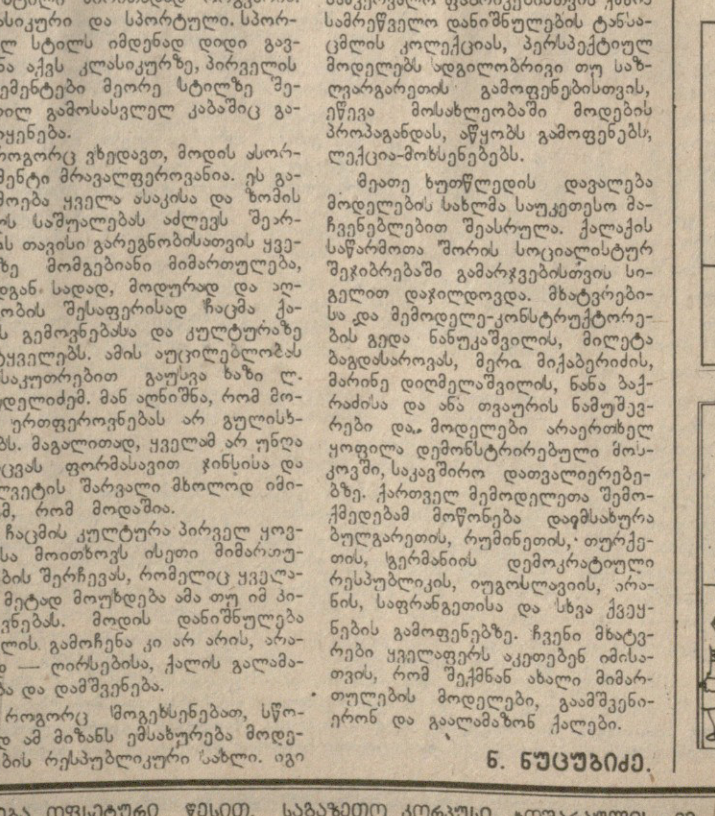 ასიკური და სპორტული. სპორ-
ლ სტილს იმდენად დიდი გავ-
ნა აქვს კლასიკურზე, პირველის
ემენტები მეორე სტილზე შე-
რილ გამოსასვლელ კაბაშიც გა-
ოყენება.
როგორც ვხედავთ, მოდის ასორ-
მენტი მრავალფეროვანია. ეს გა-
მოება ყველა ასაკისა და ზომის
ის საშუალებას აძლევს შეარ-
ას თავისი გარეგნობისათვის ყვე-
ზე მომგებიანი მიმართულება,
დგან სადად, მოდურად და აღ-
ობის შესაფერისად ჩაცმა ქა-
ს გემოვნებასა და კულტურაზე
ტყველებს. ამის აუცილებლობას
საკუთრებით გაუსვა ხაზი ლ.
უდელიძემ. მან აღნიშნა, რომ მო-
ერთფეროვნებას არ გულისხ-
ბს. მაგალითად, ყველამ არ უნდა
ცვას ფორმასავით ჯინსისა და
ლვეტის შარვალი მხოლოდ იმი-
მ, რომ მოდაშია.
ჩაცმის კულტურა პირველ ყოვ-
სა მოითხოვს ისეთი მიმართუ-
ბის შერჩევას, რომელიც ყველა-
მეტად მოუხდება ამა თუ იმ პი-
ვნებას. მოდის დანიშნულება
ლის გამოჩენა კი არ არის, არა-
დ — ღირსებისა, ქალის გალამა-
ბა და დამშვენება.
როგორც მოგეხსენებათ, სწო-
დ ამ მიზანს ემსახურება მოდე-
ბის რესპუბლიკური სახლი. იგი
სამრეწველო დანიშნულების ტანსა-
ცმლის კოლექციას, პერსპექტიულ
მოდელებს ადგილობრივი თუ საზ-
ღვარგარეთის გამოფენებისთვის,
ეწევა მოსახლეობაში მოდების
პროპაგანდას, აწყობს გამოფენებს,
ლექცია-მოხსენებებს.
მეათე ხუთწლედის დავალება
მოდელების სახლმა საუკეთესო მა-
ჩვენებლებით შეასრულა. ქალაქის
საწარმოთა შორის სოციალისტურ
შეჯიბრებაში გამარჯვებისთვის სი-
გელით დაჯილდოვდა. მხატვრები-
სა და მემოდელე-კონსტრუქტორე-
ბის გედა ნანუკაშვილის, მილეტა
ბაგდასაროვას, მერი მიქაბერიძის,
მარინე დიღმელაშვილის, ნანა ბაქ-
რაძისა და ანა თვაურის ნამუშევ-
რები და მოდელები არაერთხელ
ყოფილა დემონსტრირებული მოს-
კოვში, საკავშირო დათვალიერებე-
ბზე. ქართველ მემოდელეთა შემო-
ქმედებამ მოწონება დაიმსახურა
ბულგარეთის, რუმინეთის, თურქე-
თის, გერმანიის დემოკრატიული
რესპუბლიკის, იუგოსლავიის, ირა-
ნის, საფრანგეთისა და სხვა ქვეყ-
ნების გამოფენებზე. ჩვენი მხატვ-
რები ყველაფერს აკეთებენ იმისა-
თვის, რომ შექმნან ახალი მიმარ-
თულების მოდელები, გაამშვენი-
ერონ და გაალამაზონ ქალები.
ნ. ნუცუბიძე.
ოფსეტური წესით, საგაზეთო კორპუსი